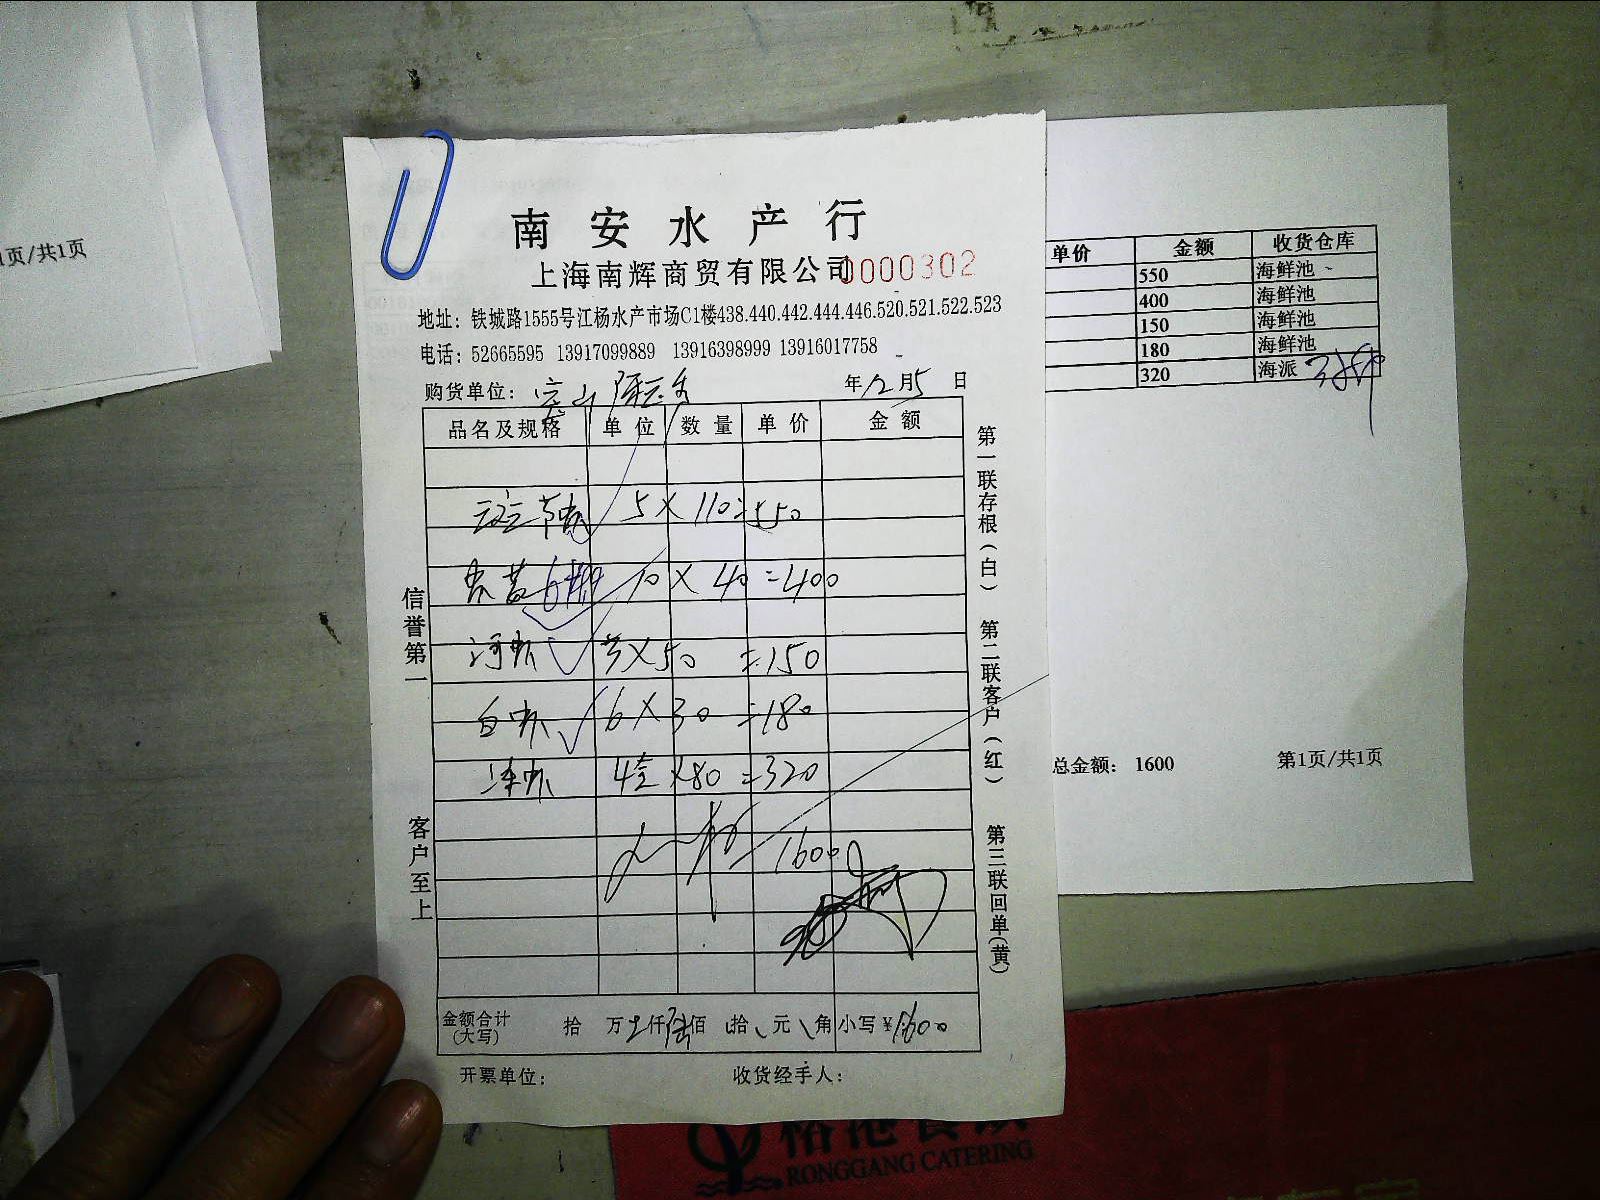 1页/共1页
南安水产行
上海南辉商贸有限公司 0000302
地址：铁城路1555号江杨水产市场C1楼438.440.442.444.446.520.521.522.523
电话：52665595 13917099889 13916398999 13916017758
购货单位：宝山 年12月5日
品名及规格 单位 数量 单价 金额
节虾 5×110=550
10×40=400
河虾 3×50=150
白虾 6×30=180
4 ×80=320
1600
金额合计（大写） 拾 万 仟陆佰 拾 元 角 小写￥1600
开票单位： 收货经手人：
信誉第一
客户至上
第一联存根（白）
第二联客户（红）
第三联回单（黄）
单价 金额 收货仓库
550 海鲜池
400 海鲜池
150 海鲜池
180 海鲜池
320 海派
总金额： 1600 第1页/共1页
RONGGANG CATERING